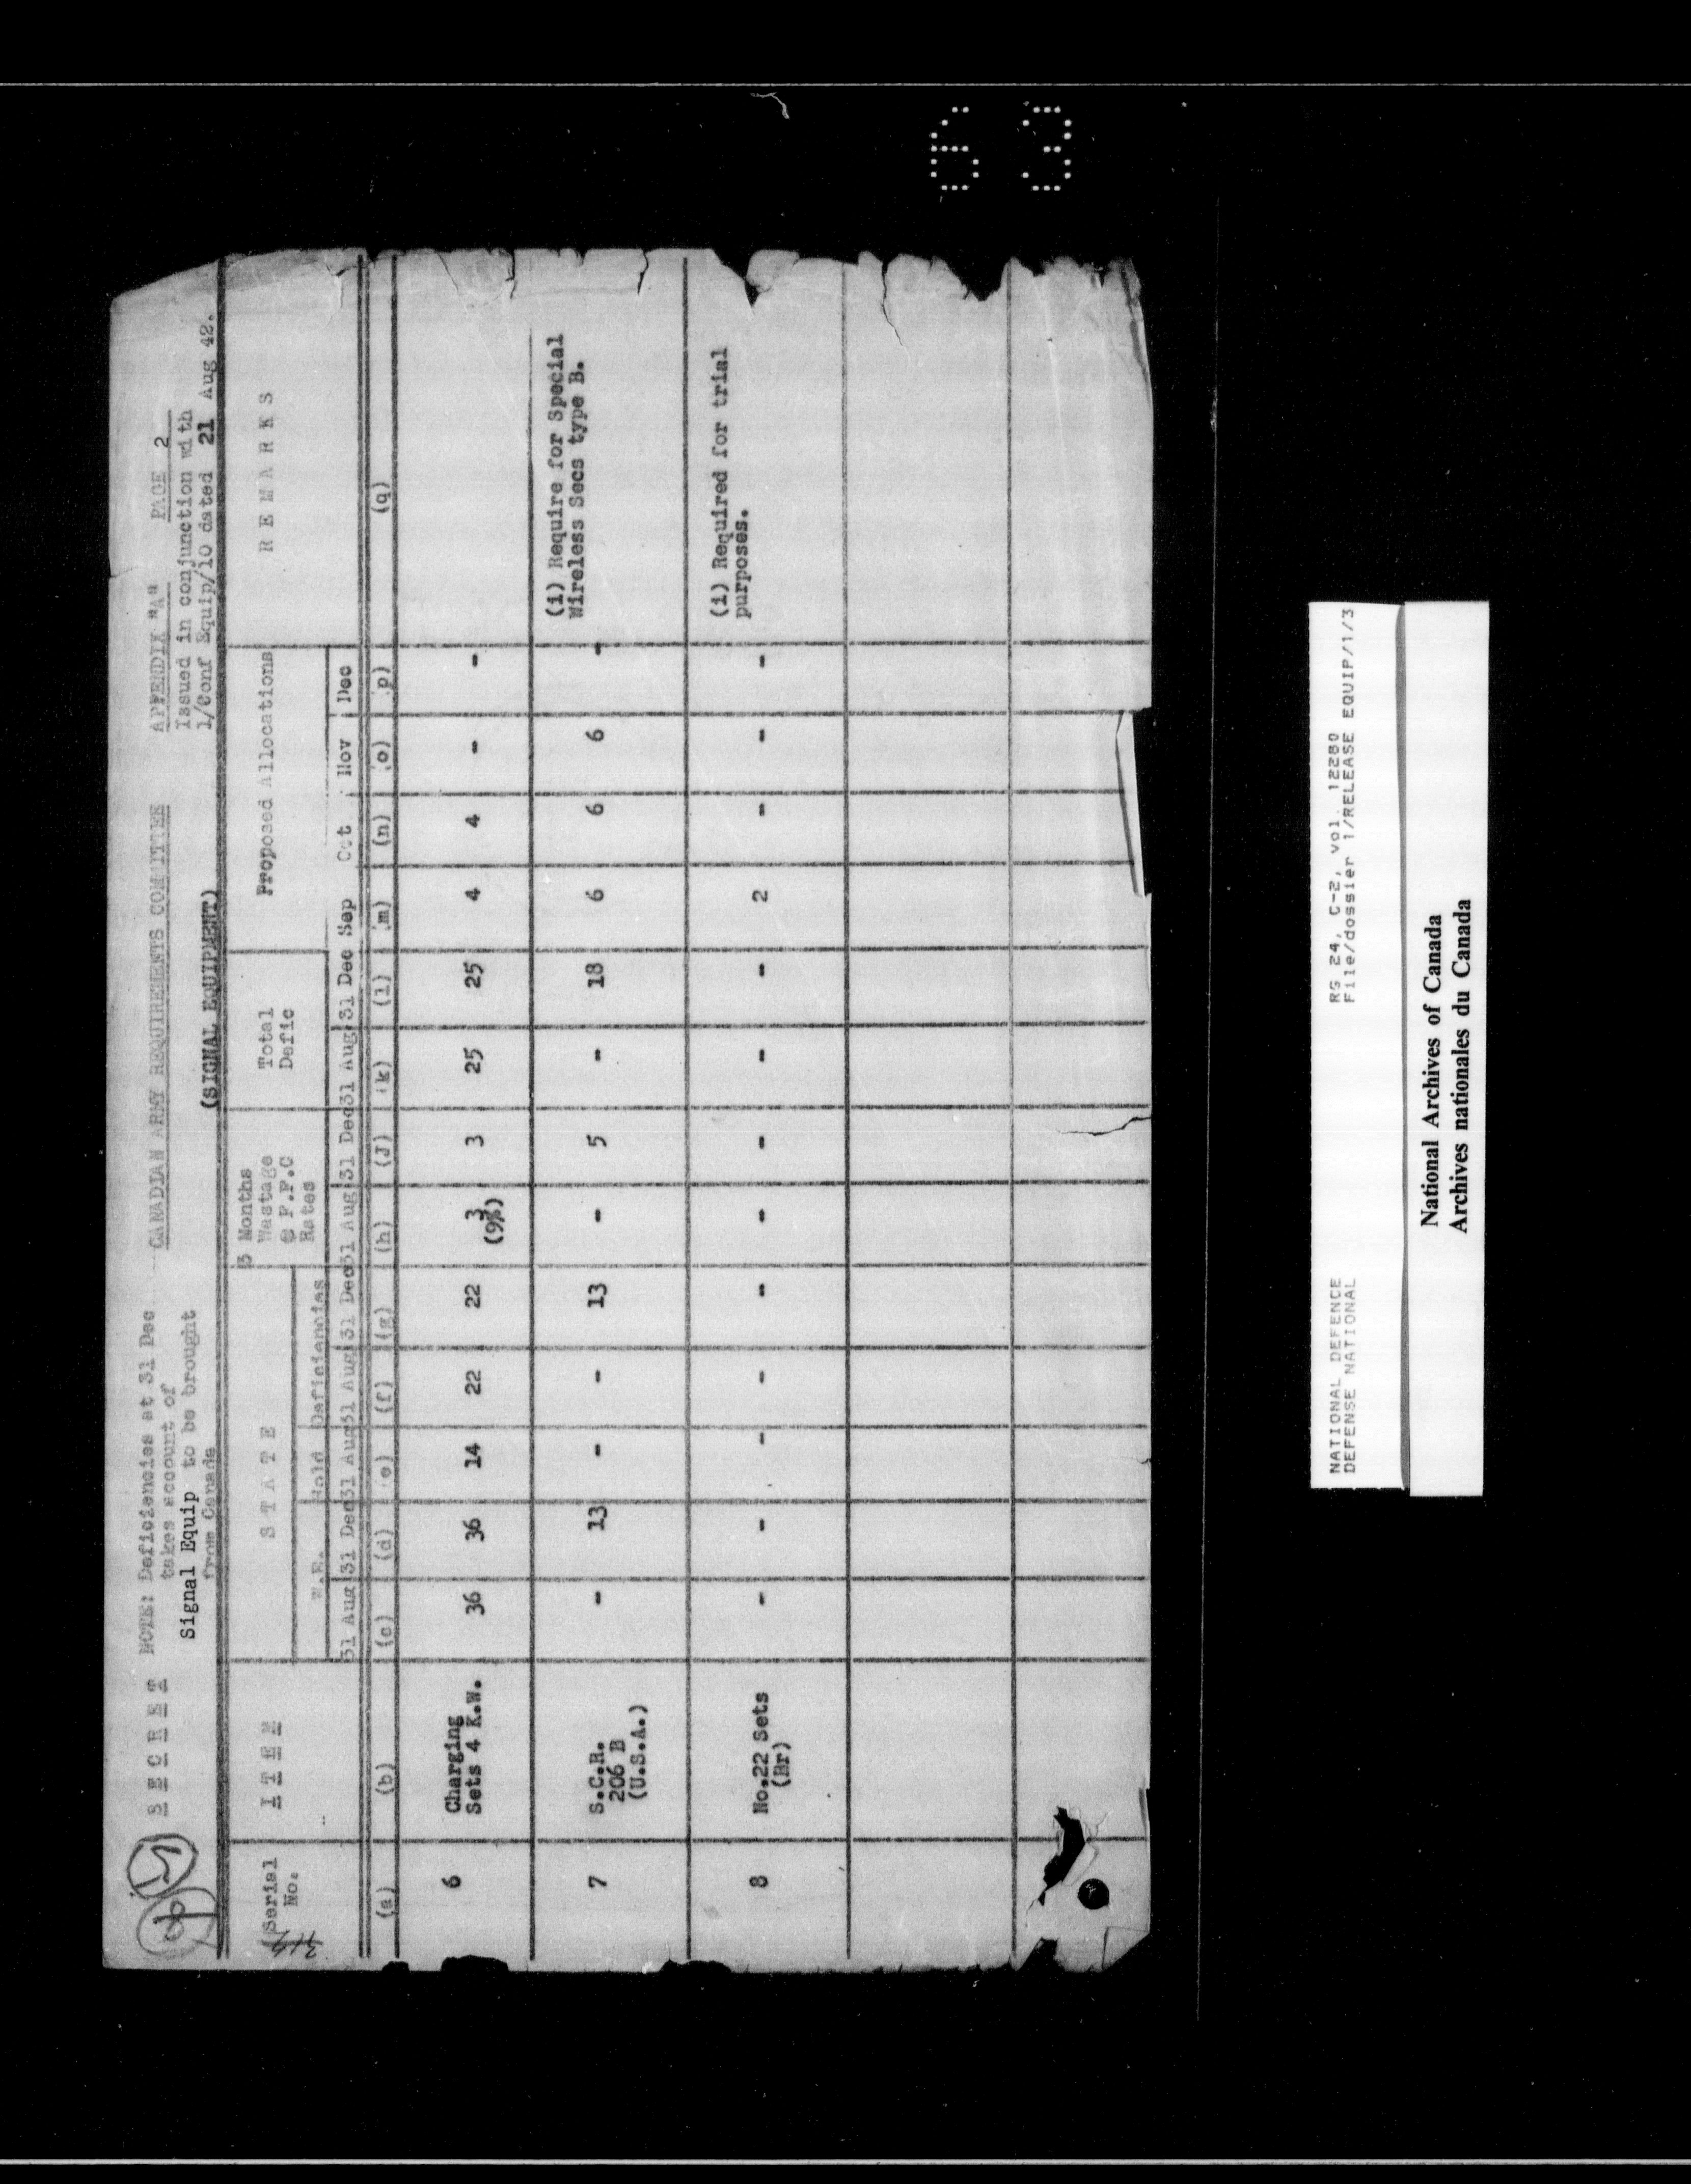 63
SECRET
NOTE: Deficiencies at 31 Dec
takes account of
Signal Equip to be brought
from Canada
CANADIAN ARMY REQUIREMENTS COMMITTEE
(SIGNAL EQUIPMENT)
APPENDIX "A" PAGE 2
Issued in conjunction with
1/Conf Equip/10 dated 21 Aug 42.
Serial No. | ITEM | STATE | 3 Months Wastage @ F.F.C Rates | Total Defic | Proposed Allocations | REMARKS
W.E. | Hold | Deficiencies
31 Aug | 31 Dec | 31 Aug | 31 Aug | 31 Dec | 31 Aug | 31 Dec | 31 Aug | 31 Dec | Sep | Oct | Nov | Dec
(a) | (b) | (c) | (d) | (e) | (f) | (g) | (h) | (J) | (k) | (l) | (m) | (n) | (o) | (p) | (q)
6 | Charging Sets 4 K.W. | 36 | 36 | 14 | 22 | 22 | 3 (9%) | 3 | 25 | 25 | 4 | 4 | - | -
7 | S.C.R. 206 B (U.S.A.) | - | 13 | - | - | 13 | - | 5 | - | 18 | 6 | 6 | 6 | - | (i) Require for Special Wireless Secs type B.
8 | No.22 Sets (Br) | - | - | - | - | - | - | - | - | - | 2 | - | - | - | (i) Required for trial purposes.
NATIONAL DEFENCE
DEFENSE NATIONAL
RG 24, C-2, vol. 12280
File/dossier 1/RELEASE EQUIP/1/3
National Archives of Canada
Archives nationales du Canada